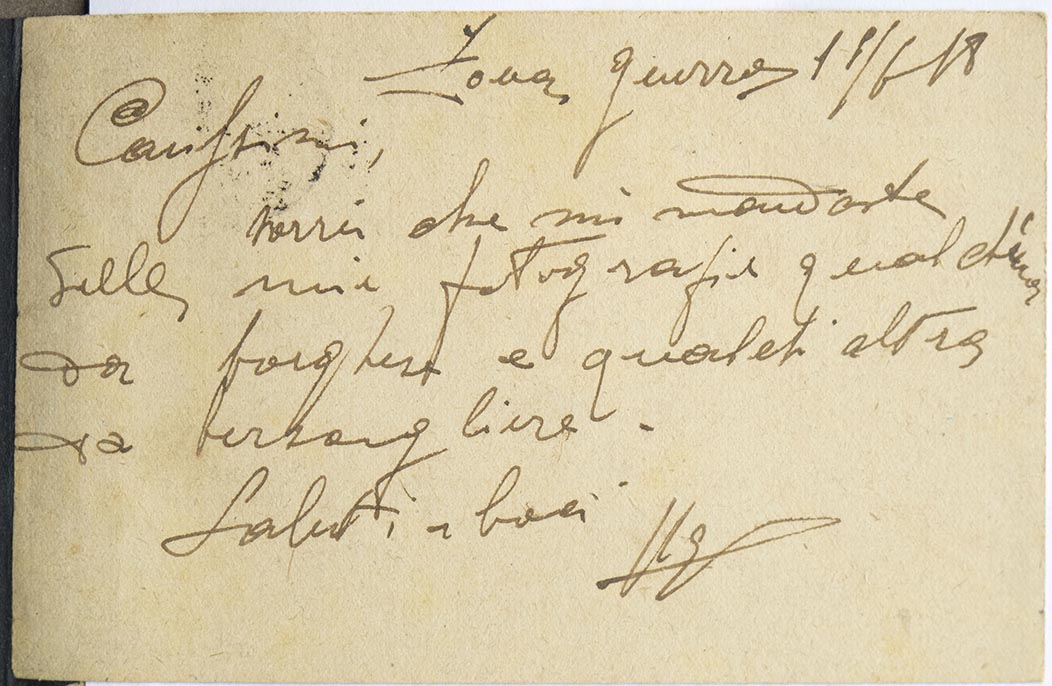 Zona guerra 11/6/18
Carissimi,
vorrei che mi mandaste
delle mie fotografie qualcheuna
da borghese e qualche altra
da bersagliere.
Saluti e baci